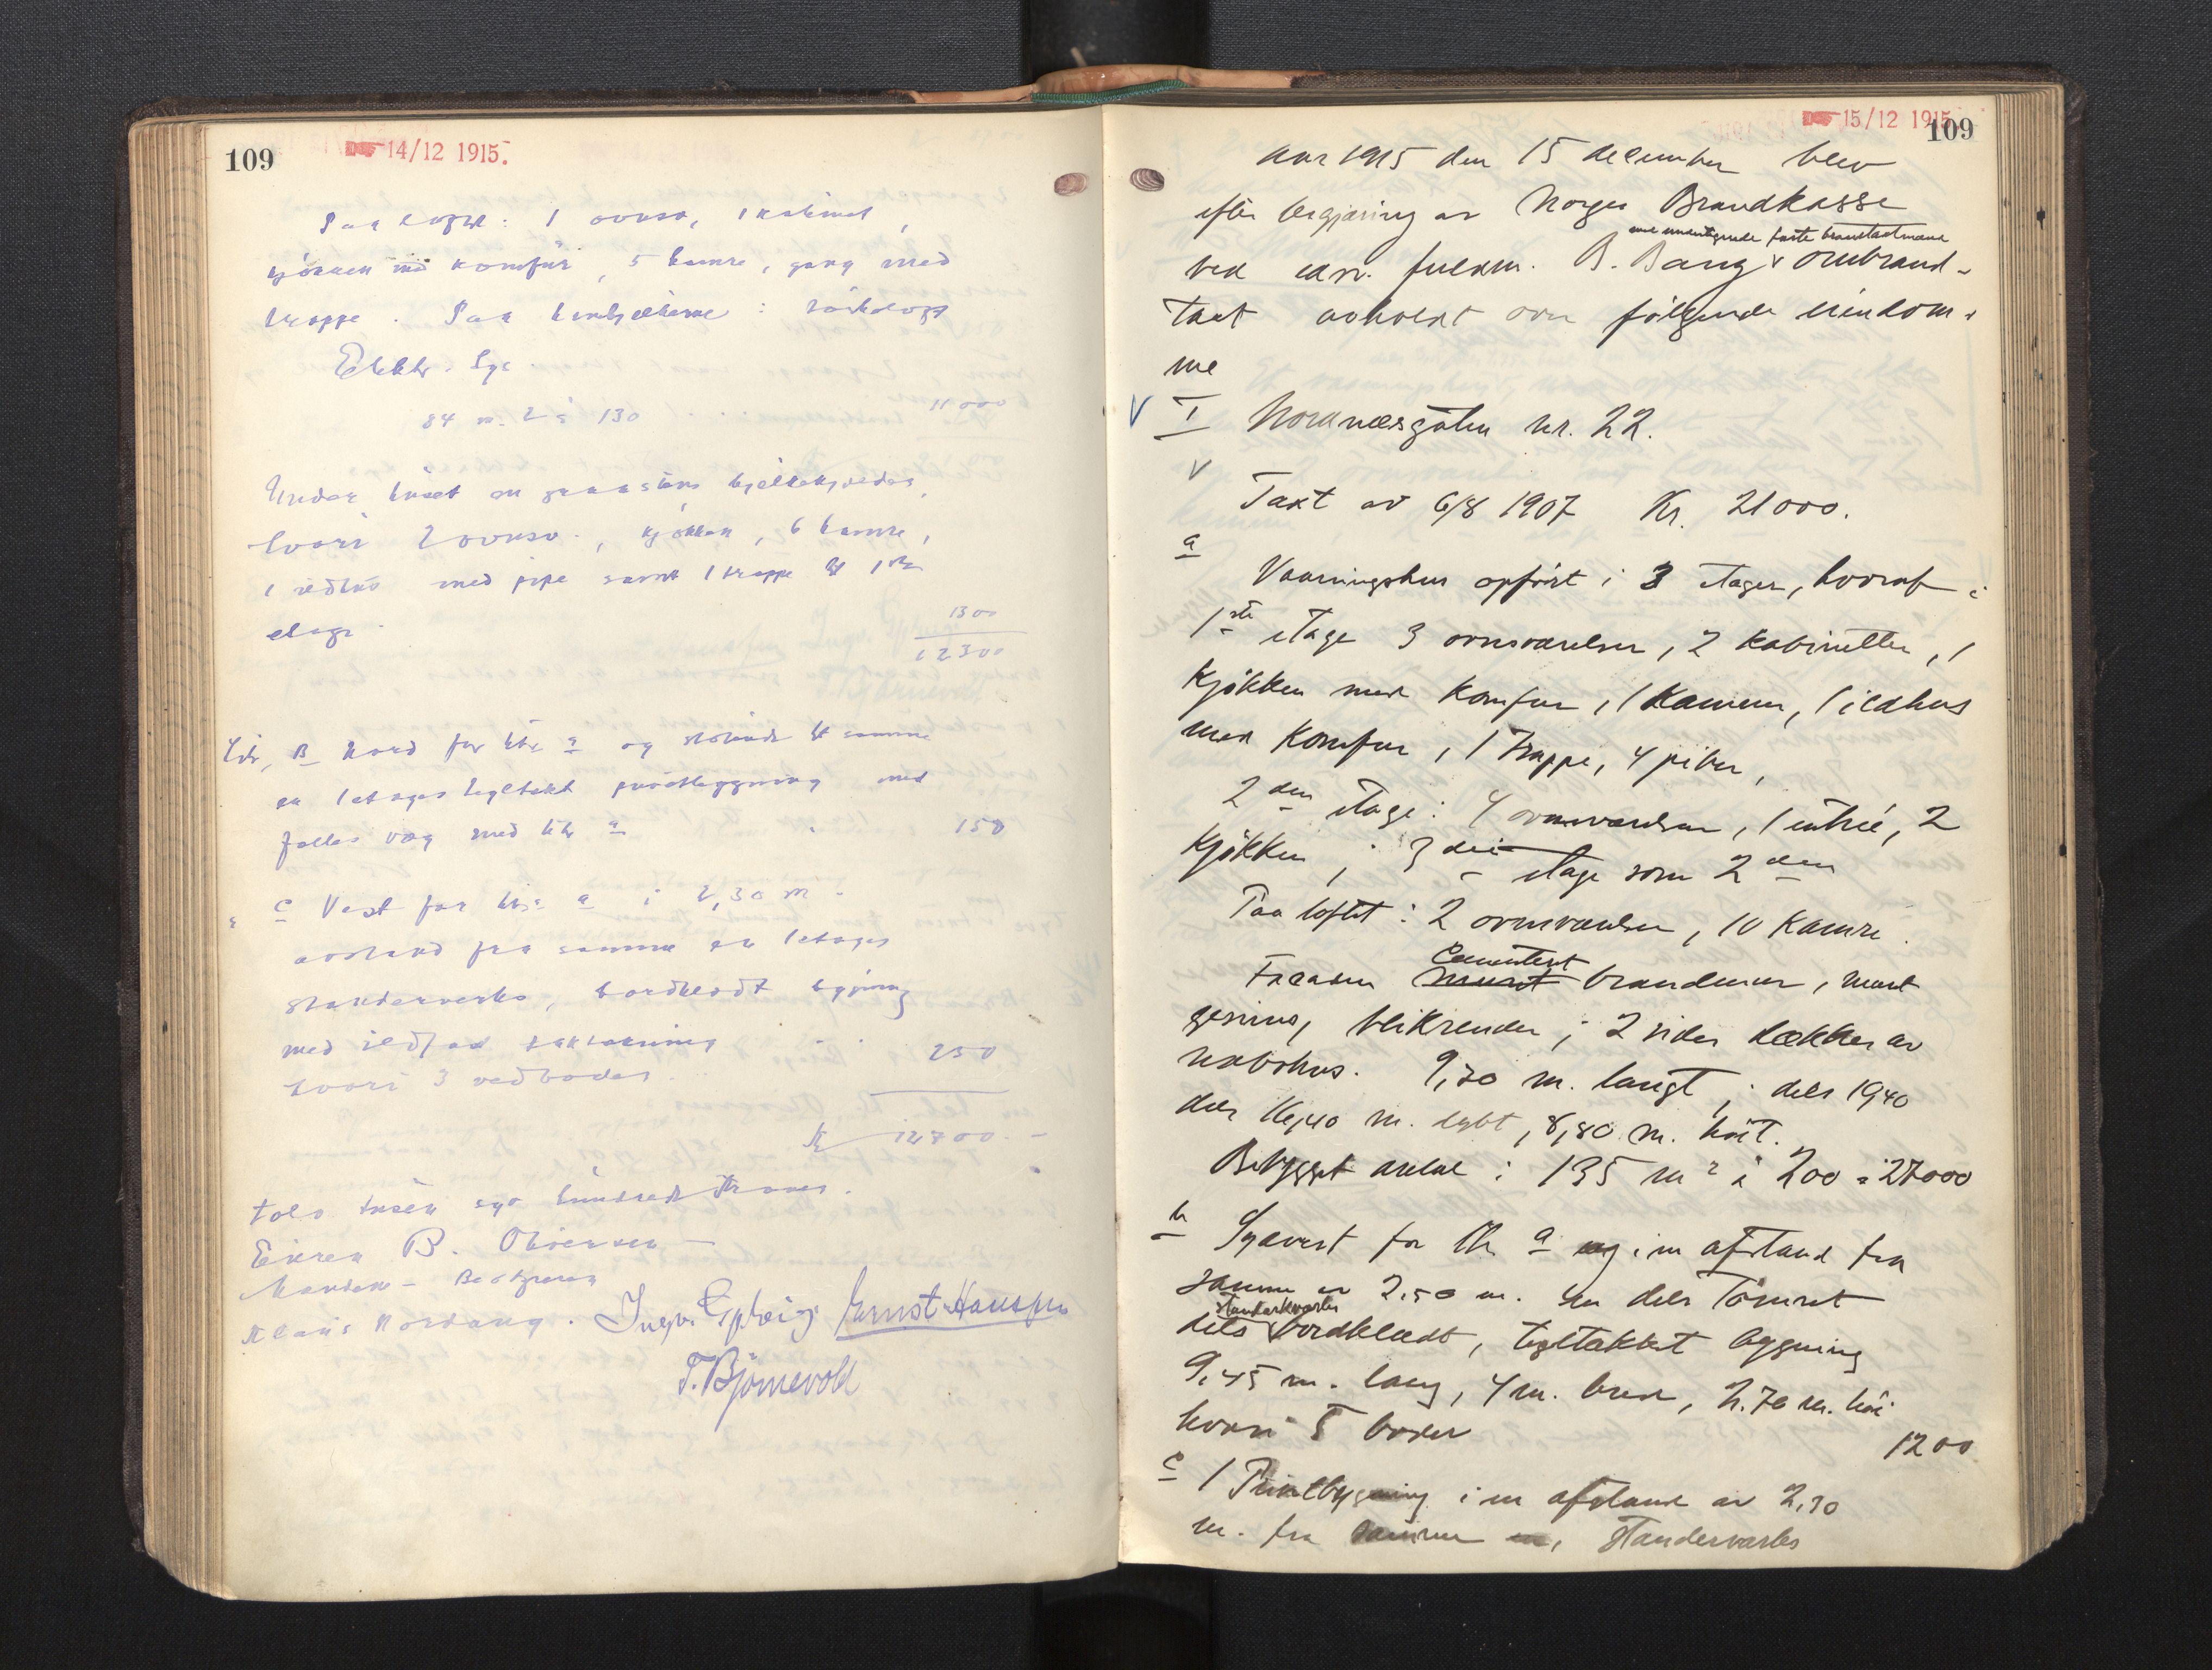 109
14/12 1915.
Paa loftet: 1 ovnsv, 1 kabinet,
kjökken med komfür, 5 kamre, gang med
trappe. Paa hanbjelkerne: törkeloft
Elektr. Lys.
84 m. 2 á 130 11000
Under huset en graastens kjelderetage,
hvori 2 ovnsv., kjökken, 6 kamre,
1 ildhus med pipe samt 1 trappe til 1ste
etage.
1300
12300
Litr. B Nord for litr a og stötende til samme
en 1etages tegltækt privetbyggning med
fælles væg med litr a 150
" C Vest for litr a i 2,30 m.
avstand fra samme en 1etages
standerverks, bordklædt bygning
med ildfast taktækning
hvori 3 vedboder. 250
Kr 12700.
Tolv tusen syv hundrede Kroner.
Eieren B.
Klaus Nordang. Ernst Hanssen
T. Bjørnevold
15/12 1915
109
Aar 1915 den 15 december blev
efter begjæring av Norges Brandkasse
med undertegnede faste brandtaxtmænd
ved edsv. fuldm. B. Bang v ombrand-
taxt avholdt over følgende eiendom-
me
V I Nordnæsgaten nr. 22.
V
Taxt av 6/8 1907 Kr. 21000.
a
Vaaningshus opført i 3 etager, hvoraf i
1ste etage 3 ovnsværelser, 2 kabinetter, 1
kjøkken med komfur, 1 kammer, 1 ildhus
med komfur, 1 trappe, 4 piber,
2den etage: 4 ovnsværelser, 1 entrée, 2
kjøkken; 3die etage som 2den
Paa loftet: 2 ovnsværelser, 10 kamre.
Cementert
Facaden muret brandmur, muret
gesims, blikrender; 2 sider dækkes av
nabohus. 9,20 m. langt; dels 19,40
dels 16,40 m. dybt, 8,80 m. høit.
Bebygget areal: 135 m2 á 200 = 27000
b Sydvest for litr a og i en afstand fra
samme av 2,50 m. en dels tømret
standerverks
dels bordklædt, tegltækket bygning
9,45 m. lang, 4 m. bred, 2.70 m. høi
hvori 5 boder 1200
c 1 Privetbygning i en afstand av 2,30
m. fra samme en, standerværks